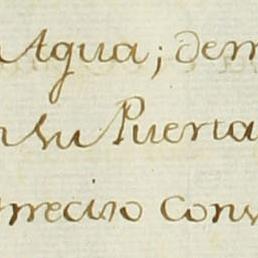 Agua; dem
n su Puerta
rrecivo Cons